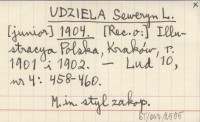 UDZIELA Seweryn L.
[junior] 1904. [Rec. o:] Illu-
stracya Polska, Kraków, r.
1901 i 1902. — Lud 10,
nr 4: 458-460.
M.in. styl zakop.